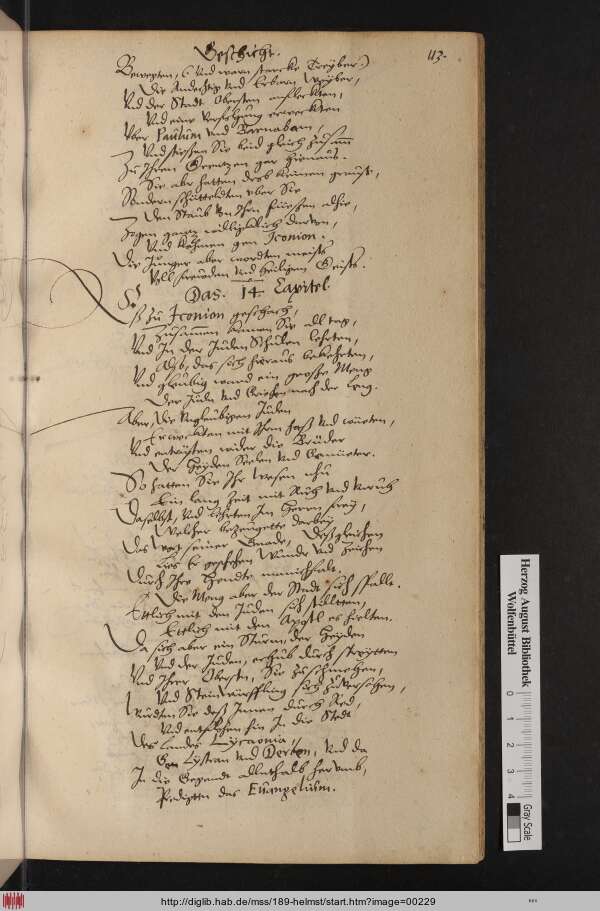 Geschicht.
113.
Bewegten, (und warn starcke Treÿber,)
Die Andechtig und Erbarn Weÿber,
Und der Stadt Obersten
Und eine Verfolgung erweckten
Uber Paulum und Barnabam,
Und stiessen Sie beid gleich zusamm
Zu Ihren Grentzen gar hienaus.
Sie abr hatten drob keinen graus,
Sondern schüttelten uber Sie
Den Staub von Ihrn füessen alhie,
Zogen gantz williglich darvon,
Und kahmen gen Iconion.
Die Junger aber wordten meist
Voll freuden und heiligen Geists.
Das. 14. Capitel
Es zu Iconion geschach,
Zusammen kamen Sie all tag,
Und In der Juden Schulen lehrten,
Also, das sich heraus bekehrten,
Und glaubig ward ein grosse Meng
Der Judn und Griechen nach der leng.
Aber, die Ungleubigen Juden
Erweckten mit Ihrm haß und wüeten,
Und entrüsten wider die Brüder
Der Heÿden Seelen und Gemüeter.
So hatten Sie Ihr wesen nhu
Ein lang Zeit mit Ruh und Unruh
Daselbst, und lehrten Im Herrn freÿ,
Welcher bezeugette darbeÿ
Das Wort seiner Gnade, Deßgleichen
Lies Er geschehen Wunder und Zeichen
Durch Ihre Hendte manichfalt.
Die Meng aber der Stadt sich spalt.
Ettlich mit den Juden sich stelltten,
Ettlich mit den Apostl es hielten.
Da sich aber ein Sturm, der Heÿden
Und der Juden, erhub durch
Und Ihrer Obersten, Sie zu schmehen,
Und Steinwürffung sich zuversehen,
Wurdten Sie deß Innen durch Red,
Und entflohen hin In die Stedt
Des Landes Lycaonia,
Gen Lystran und Derben, und da
In die Gegendt allenthalb herumb,
Predigten das Euangelium.
Herzog August Bibliothek
Wolfenbüttel
0 1 2 3 4
Gray Scale
http://diglib.hab.de/mss/189-helmst/start.htm?image=00229